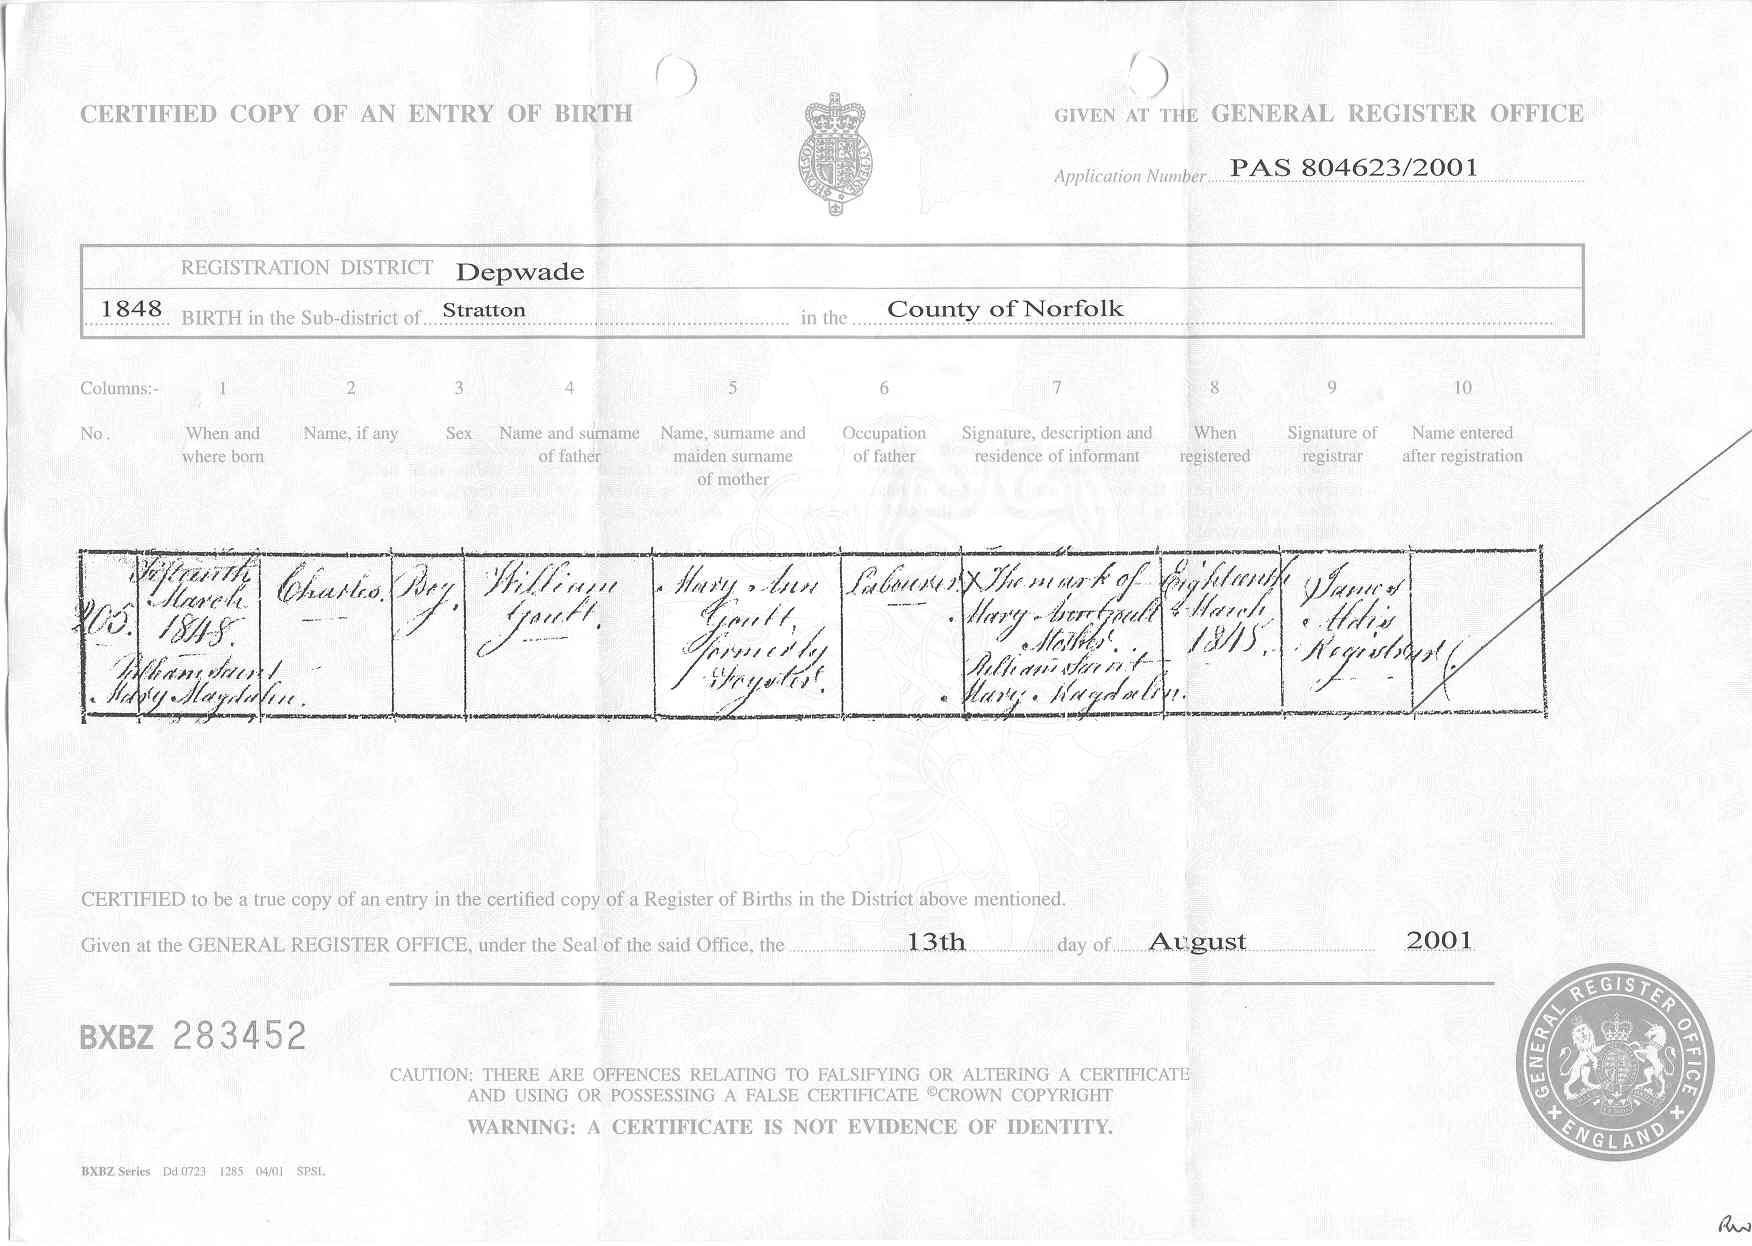 CERTIFIED COPY OF AN ENTRY OF BIRTH
GIVEN AT THE GENERAL REGISTER OFFICE
Application Number PAS 804623/2001
REGISTRATION DISTRICT Depwade
1848 BIRTH in the Sub-district of Stratton in the County of Norfolk
Columns:- 1 2 3 4 5 6 7 8 9 10
No. When and where born Name, if any Sex Name and surname of father Name, surname and maiden surname of mother Occupation of father Signature, description and residence of informant When registered Signature of registrar Name entered after registration
205.
Fifteenth
March
1848.
Pulham Saint
Mary Magdalen.
Charles.
Boy.
William
Goult.
Mary Ann
Goult,
formerly
Foyster.
Labourer.
X The mark of
Mary Ann Goult
Mother.
Pulham Saint
Mary Magdalen.
Eighteenth
March
1848.
James
Aldis
Registrar
CERTIFIED to be a true copy of an entry in the certified copy of a Register of Births in the District above mentioned.
Given at the GENERAL REGISTER OFFICE, under the Seal of the said Office, the 13th day of August 2001
BXBZ 283452
GENERAL REGISTER OFFICE
ENGLAND
CAUTION: THERE ARE OFFENCES RELATING TO FALSIFYING OR ALTERING A CERTIFICATE
AND USING OR POSSESSING A FALSE CERTIFICATE ©CROWN COPYRIGHT
WARNING: A CERTIFICATE IS NOT EVIDENCE OF IDENTITY.
BXBZ Series Dd 0723 1285 04/01 SPSL